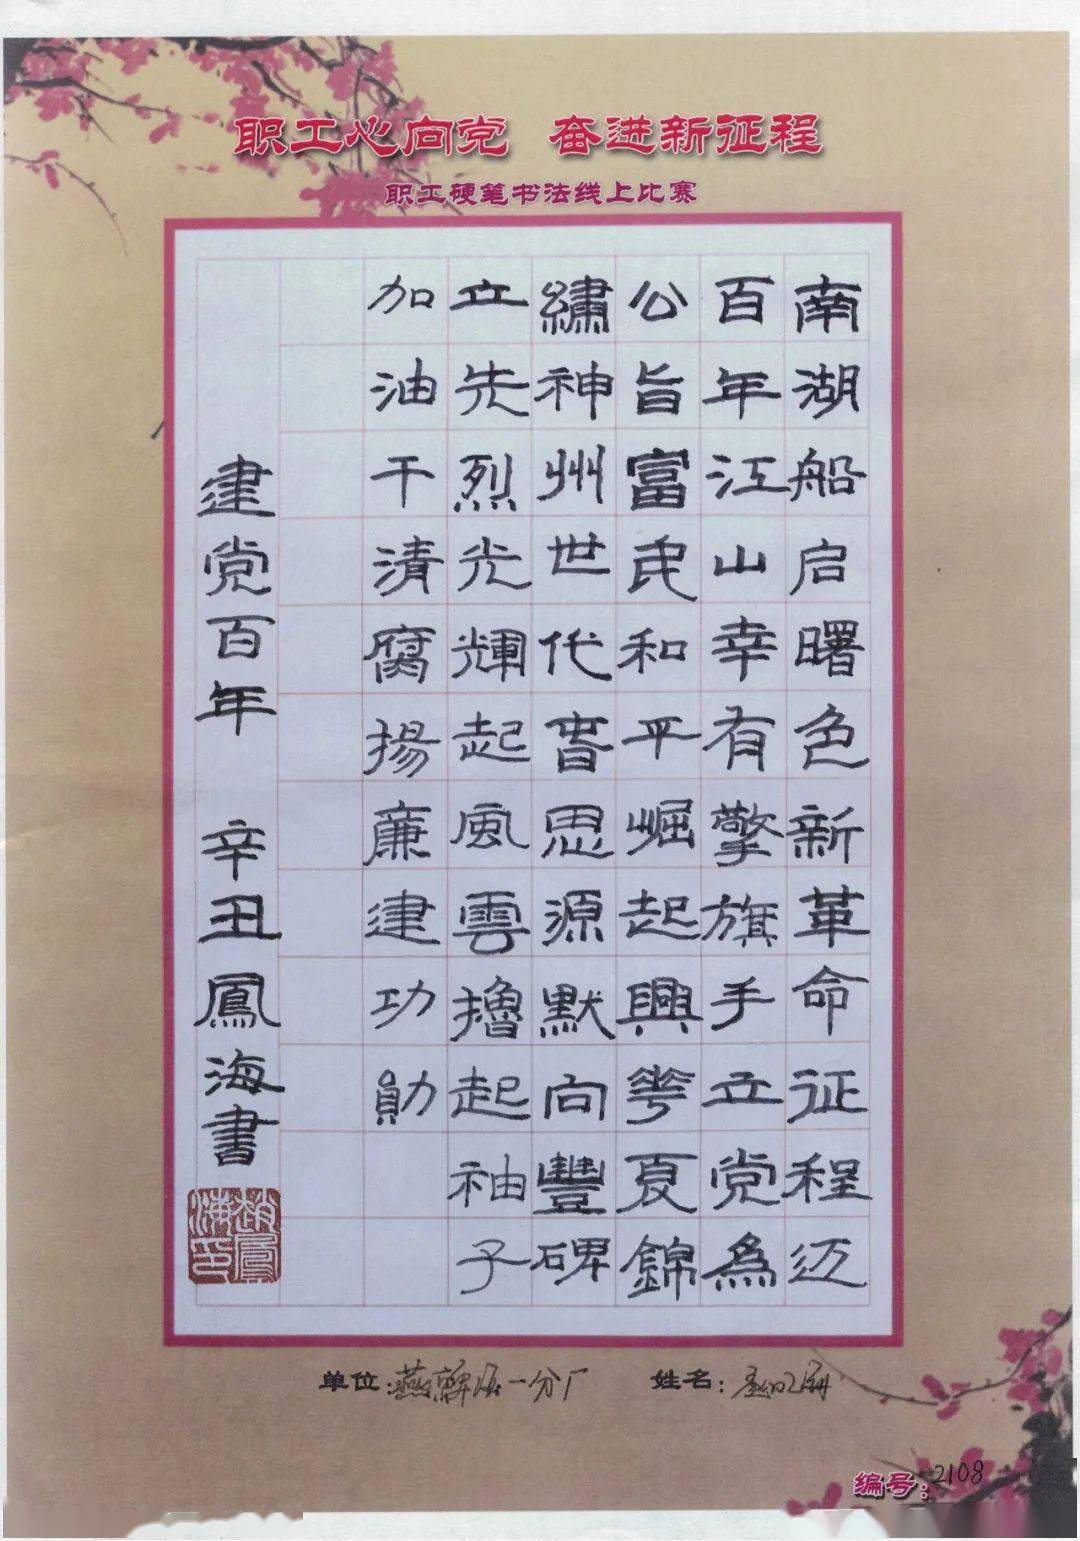 职工心向党 奋进新征程
职工硬笔书法线上比赛
南湖船启曙色新革命征程迈
百年江山幸有擎旗手立党為
公旨富民和平崛起興華夏錦
繡神州世代昔思源默向豐碑
立先烈光輝起風雲擼起袖子
加油干清腐揚廉建功勛
建党百年 辛丑鳳海書
趙鳳海印
单位:一分厂
姓名:
编号:2108